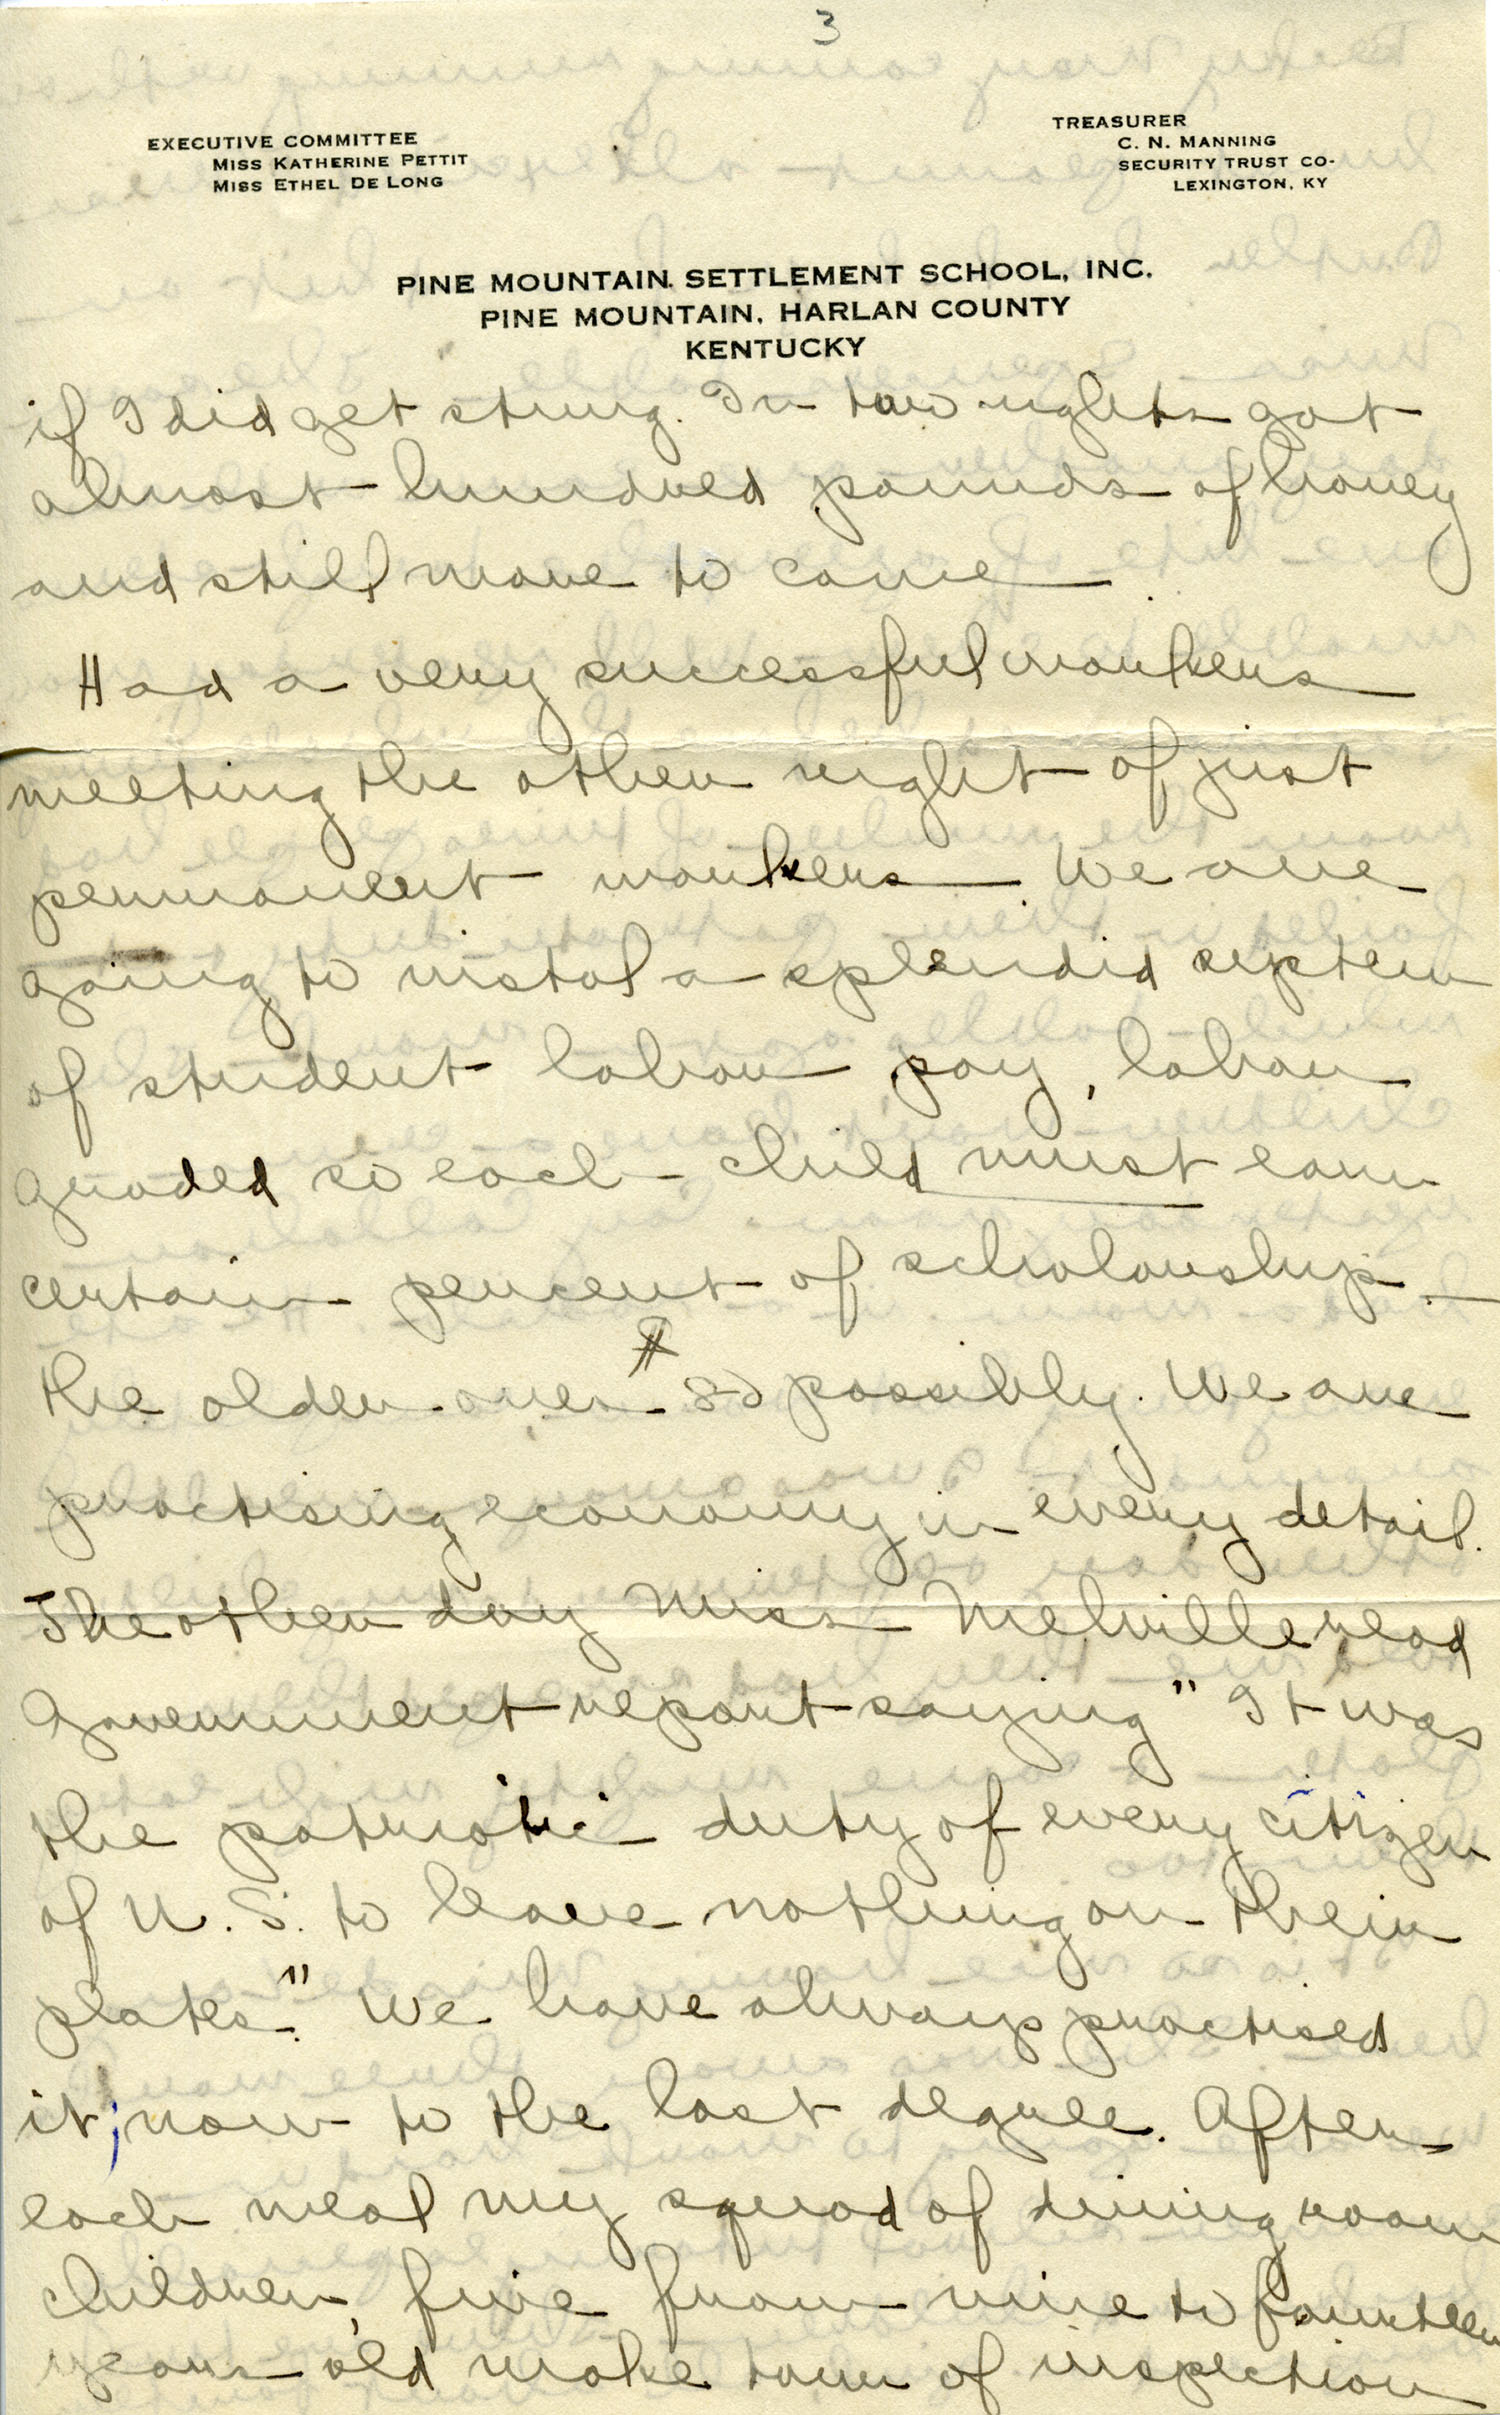 3
EXECUTIVE COMMITTEE
MISS KATHERINE PETTIT
MISS ETHEL DE LONG
TREASURER
C. N. MANNING
SECURITY TRUST CO-
LEXINGTON, KY
PINE MOUNTAIN SETTLEMENT SCHOOL, INC.
PINE MOUNTAIN, HARLAN COUNTY
KENTUCKY
if I did get stung. In two nights got
almost hundred pounds of honey
and still more to come.
Had a very successful workers
meeting the other night of just
permanent workers. We are
going to instal a splendid system
of student labour pay, labour
graded so each child must earn
certain percent of scholarship.
the older ones $80 possibly. We are
practising economy in every detail.
The other day Miss Melville read
Government report saying "It was
the patriotic duty of every citizen
of U.S. to leave nothing on their
plates." We have always practised
it; now to the last degree. After
each meal my squad of dining room
children, five from nine to fourteen
years old make tour of inspection